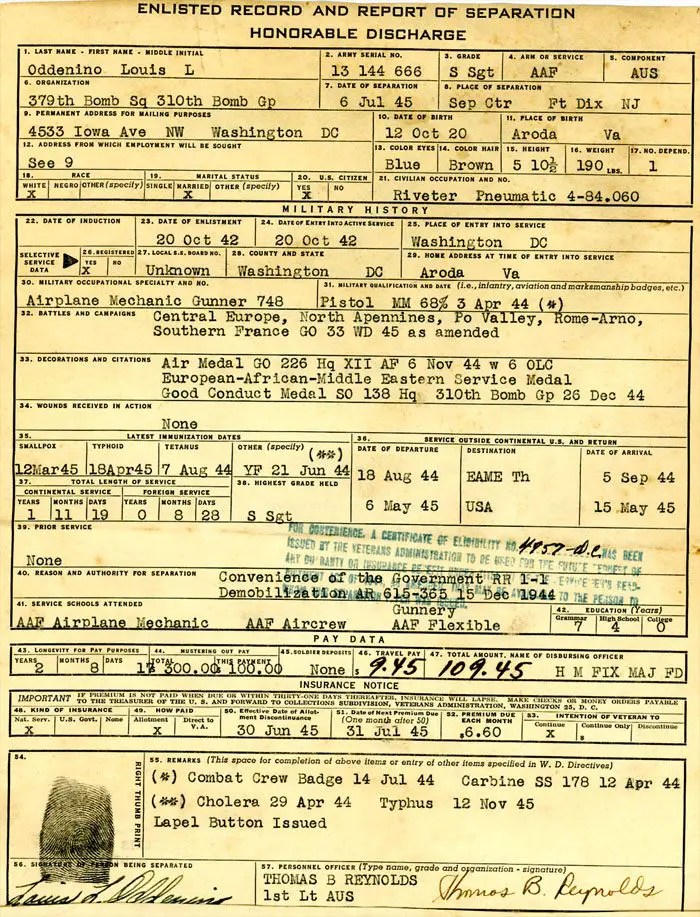 ENLISTED RECORD AND REPORT OF SEPARATION
HONORABLE DISCHARGE
1. LAST NAME - FIRST NAME - MIDDLE INITIAL
Oddenino Louis L
2. ARMY SERIAL NO.
13 144 666
3. GRADE
S Sgt
4. ARM OR SERVICE
AAF
5. COMPONENT
AUS
6. ORGANIZATION
379th Bomb Sq 310th Bomb Gp
7. DATE OF SEPARATION
6 Jul 45
8. PLACE OF SEPARATION
Sep Ctr Ft Dix NJ
9. PERMANENT ADDRESS FOR MAILING PURPOSES
4533 Iowa Ave NW Washington DC
10. DATE OF BIRTH
12 Oct 20
11. PLACE OF BIRTH
Aroda Va
12. ADDRESS FROM WHICH EMPLOYMENT WILL BE SOUGHT
See 9
13. COLOR EYES
Blue
14. COLOR HAIR
Brown
15. HEIGHT
5 10½
16. WEIGHT
190 LBS.
17. NO. DEPEND.
1
18. RACE
WHITE NEGRO OTHER (specify)
X
19. MARITAL STATUS
SINGLE MARRIED OTHER (specify)
X
20. U.S. CITIZEN
YES NO
X
21. CIVILIAN OCCUPATION AND NO.
Riveter Pneumatic 4-84.060
MILITARY HISTORY
22. DATE OF INDUCTION
23. DATE OF ENLISTMENT
20 Oct 42
24. DATE OF ENTRY INTO ACTIVE SERVICE
20 Oct 42
25. PLACE OF ENTRY INTO SERVICE
Washington DC
SELECTIVE SERVICE DATA
26. REGISTERED
YES NO
X
27. LOCAL S.S. BOARD NO.
Unknown
28. COUNTY AND STATE
Washington DC
29. HOME ADDRESS AT TIME OF ENTRY INTO SERVICE
Aroda Va
30. MILITARY OCCUPATIONAL SPECIALTY AND NO.
Airplane Mechanic Gunner 748
31. MILITARY QUALIFICATION AND DATE (i.e., infantry, aviation and marksmanship badges, etc.)
Pistol MM 68% 3 Apr 44 (*)
32. BATTLES AND CAMPAIGNS
Central Europe, North Apennines, Po Valley, Rome-Arno,
Southern France GO 33 WD 45 as amended
33. DECORATIONS AND CITATIONS
Air Medal GO 226 Hq XII AF 6 Nov 44 w 6 OLC
European-African-Middle Eastern Service Medal
Good Conduct Medal SO 138 Hq 310th Bomb Gp 26 Dec 44
34. WOUNDS RECEIVED IN ACTION
None
35. LATEST IMMUNIZATION DATES
SMALLPOX
12Mar45
TYPHOID
18Apr45
TETANUS
7 Aug 44
OTHER (specify)
(**)
YF 21 Jun 44
36. SERVICE OUTSIDE CONTINENTAL U.S. AND RETURN
DATE OF DEPARTURE DESTINATION DATE OF ARRIVAL
18 Aug 44 EAME Th 5 Sep 44
6 May 45 USA 15 May 45
37. TOTAL LENGTH OF SERVICE
CONTINENTAL SERVICE FOREIGN SERVICE
YEARS MONTHS DAYS YEARS MONTHS DAYS
1 11 19 0 8 28
38. HIGHEST GRADE HELD
S Sgt
39. PRIOR SERVICE
None
FOR CONVENIENCE, A CERTIFICATE OF ELIGIBILITY NO. 4957-D.C. HAS BEEN
ISSUED BY THE VETERANS ADMINISTRATION TO BE USED FOR THE FUTURE REQUEST OF
ANY GUARANTY OR INSURANCE
40. REASON AND AUTHORITY FOR SEPARATION
Convenience of the Government RR 1-1
Demobilization AR 615-365 15 Dec 1944
41. SERVICE SCHOOLS ATTENDED
Gunnery
AAF Airplane Mechanic AAF Aircrew AAF Flexible
42. EDUCATION (Years)
Grammar High School College
7 4 0
PAY DATA
43. LONGEVITY FOR PAY PURPOSES
YEARS MONTHS DAYS
2 8 17
44. MUSTERING OUT PAY
TOTAL THIS PAYMENT
$ 300.00 $ 100.00
45. SOLDIER DEPOSITS
None
46. TRAVEL PAY
$ 9.45
47. TOTAL AMOUNT, NAME OF DISBURSING OFFICER
109.45 H M FIX MAJ FD
INSURANCE NOTICE
IMPORTANT IF PREMIUM IS NOT PAID WHEN DUE OR WITHIN THIRTY-ONE DAYS THEREAFTER, INSURANCE WILL LAPSE. MAKE CHECKS OR MONEY ORDERS PAYABLE
TO THE TREASURER OF THE U. S. AND FORWARD TO COLLECTIONS SUBDIVISION, VETERANS ADMINISTRATION, WASHINGTON 25, D. C.
48. KIND OF INSURANCE
Nat. Serv. U.S. Govt. None
X
49. HOW PAID
Allotment Direct to V.A.
X
50. Effective Date of Allotment Discontinuance
30 Jun 45
51. Date of Next Premium Due (One month after 50)
31 Jul 45
52. PREMIUM DUE EACH MONTH
$ 6.60
53. INTENTION OF VETERAN TO
Continue Continue Only Discontinue
X $
54.
RIGHT THUMB PRINT
55. REMARKS (This space for completion of above items or entry of other items specified in W. D. Directives)
(*) Combat Crew Badge 14 Jul 44 Carbine SS 178 12 Apr 44
(**) Cholera 29 Apr 44 Typhus 12 Nov 45
Lapel Button Issued
56. SIGNATURE OF PERSON BEING SEPARATED
Louis L. Oddenino
57. PERSONNEL OFFICER (Type name, grade and organization - signature)
THOMAS B REYNOLDS
1st Lt AUS
Thomas B. Reynolds